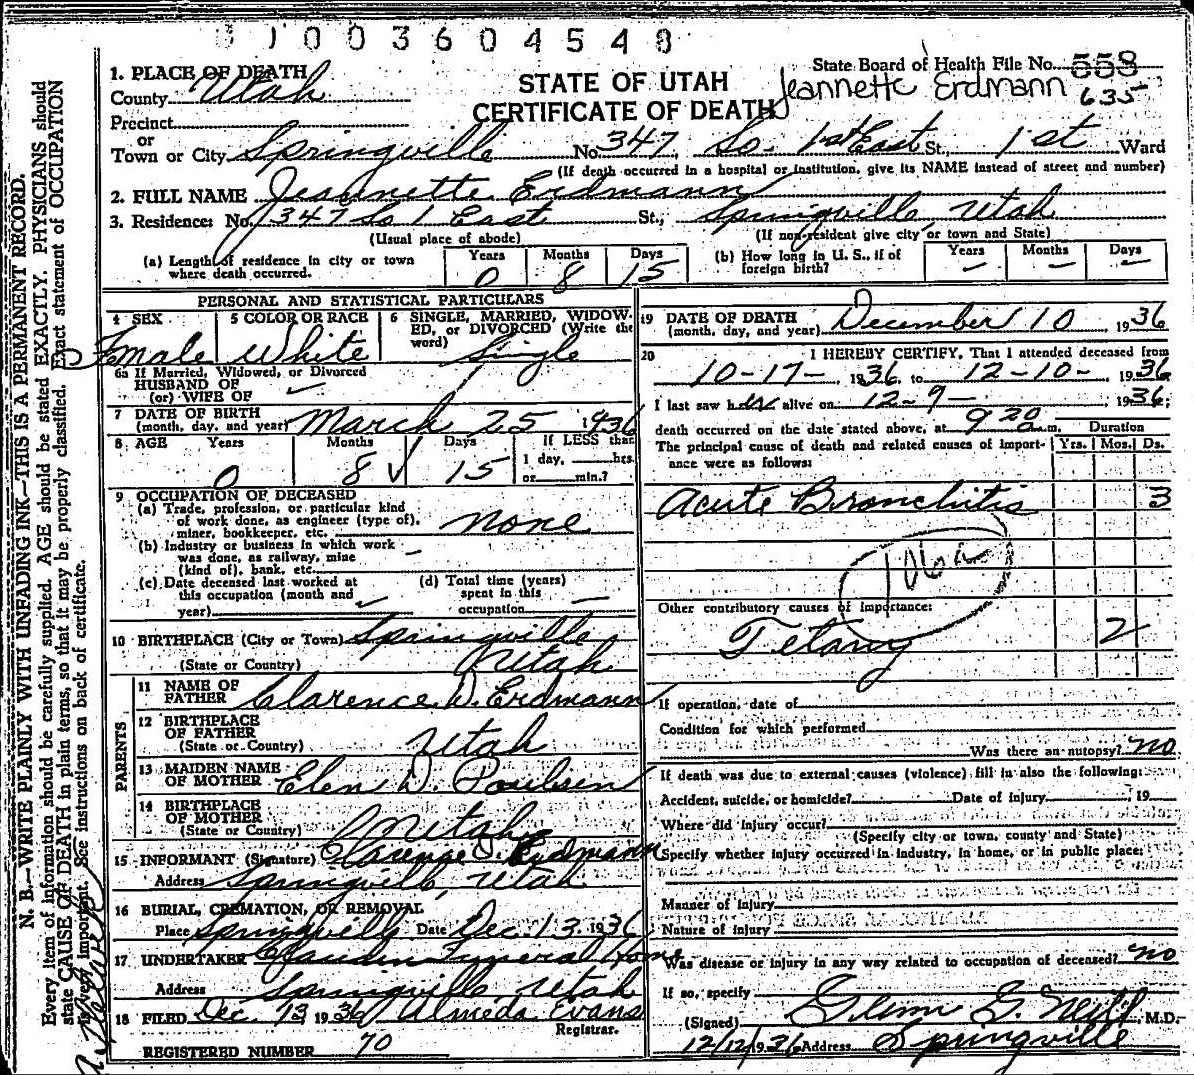 0 1 0 0 3 6 0 4 5 4 8
State Board of Health File No. 558
635
Jeannette Erdmann
STATE OF UTAH
CERTIFICATE OF DEATH
1. PLACE OF DEATH
County Utah
Precinct
or
Town or City Springville No. 347 So. 1st East St., 1st Ward
(If death occurred in a hospital or institution, give its NAME instead of street and number)
2. FULL NAME Jeannette Erdmann
3. Residence: No. 347 So 1 East St., Springville, Utah
(Usual place of abode) (If non-resident give city or town and State)
(a) Length of residence in city or town where death occurred. Years 0 Months 8 Days 15
(b) How long in U. S., if of foreign birth? Years – Months – Days –
PERSONAL AND STATISTICAL PARTICULARS
4 SEX Female
5 COLOR OR RACE White
6 SINGLE, MARRIED, WIDOWED, or DIVORCED (Write the word) Single
6a If Married, Widowed, or Divorced
HUSBAND OF
(or) WIFE OF
7 DATE OF BIRTH
(month, day, and year) March 25 1936
8 AGE Years 0 Months 8 Days 15
If LESS than
1 day, hrs.
or min.?
9 OCCUPATION OF DECEASED
(a) Trade, profession, or particular kind
of work done, as engineer (type of),
miner, bookkeeper, etc. none
(b) Industry or business in which work
was done, as railway, mine
(kind of), bank, etc. –
(c) Date deceased last worked at
this occupation (month and
year)
(d) Total time (years)
spent in this
occupation –
10 BIRTHPLACE (City or Town) Springville
(State or Country) Utah
PARENTS
11 NAME OF
FATHER Clarence D. Erdmann
12 BIRTHPLACE
OF FATHER
(State or Country) Utah
13 MAIDEN NAME
OF MOTHER Elen D. Poulsen
14 BIRTHPLACE
OF MOTHER
(State or Country) Utah
15 INFORMANT (Signature) Clarence D. Erdmann
Address Springville, Utah
16 BURIAL, CREMATION, OR REMOVAL,
Place Springville Date Dec. 13, 1936
17 UNDERTAKER Funeral Home
Address Springville, Utah
18 FILED Dec. 13, 1936 Almeda Evans
Registrar.
REGISTERED NUMBER 70
19 DATE OF DEATH
(month, day, and year) December 10, 1936
20 I HEREBY CERTIFY, That I attended deceased from
10-17-, 1936, to 12-10-, 1936
I last saw her alive on 12-9-, 1936;
death occurred on the date stated above, at 9 20 a.m.
The principal cause of death and related causes of importance were as follows:
Duration
Yrs. Mos. Ds.
Acute Bronchitis 3
106a
Other contributory causes of importance:
Tetany 2
If operation, date of
Condition for which performed
Was there an autopsy? no
If death was due to external causes (violence) fill in also the following:
Accident, suicide, or homicide? Date of injury , 19
Where did injury occur?
(Specify city or town, county and State)
Specify whether injury occurred in industry, in home, or in public place:
Manner of injury
Nature of injury
Was disease or injury in any way related to occupation of deceased? no
If so, specify
(Signed) Glenn G. , M.D.
12/12/1936 Address Springville
N. B.—WRITE PLAINLY WITH UNFADING INK—THIS IS A PERMANENT RECORD.
Every item of information should be carefully supplied. AGE should be stated EXACTLY. PHYSICIANS should
state CAUSE OF DEATH in plain terms, so that it may be properly classified. Exact statement of OCCUPATION
is very important. See instructions on back of certificate.